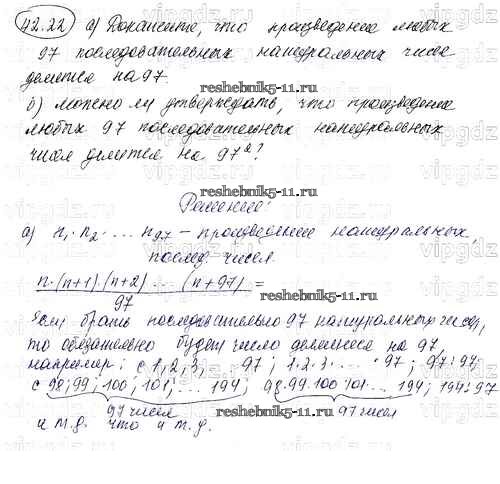 42.22 а) Докажите, что произведение любых
97 последовательных натуральных чисел
делится на 97.
reshebnik5-11.ru
б) можно ли утверждать, что произведение
любых 97 последовательных натуральных
чисел делится на 97²?
reshebnik5-11.ru
Решение:
а) n₁·n₂·...·n₉₇ – произведение натуральных,
послед. чисел
n·(n+1)·(n+2)·...·(n+97) / 97 =
reshebnik5-11.ru
Если брать последовательно 97 натуральных чисел,
то обязательно будет число делящееся на 97,
например: с 1,2,3,...97; 1·2·3·...·97; 97:97
с 98;99;100;101;...194; 98·99·100·101·...194; 194:97
97 чисел 97 чисел
reshebnik5-11.ru
и т.д. что и т.д.